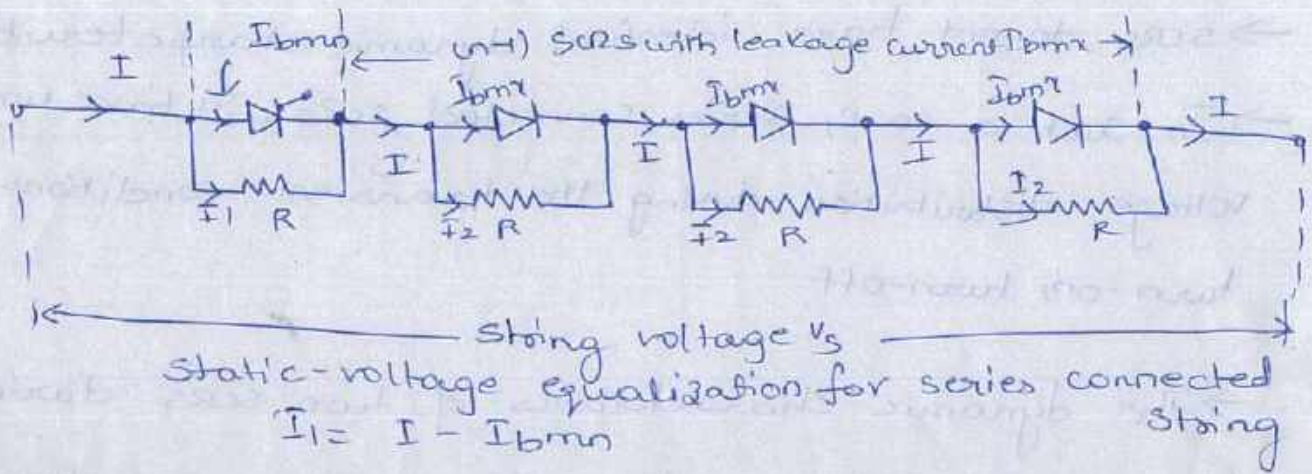 Ibmn (n-1) SCRS with leakage current Ibmx
I Ibmx Ibmx Ibmx I
I I I I2
I1 R I2 R I2 R R
String voltage Vs
Static-voltage equalization for series connected
string
I1 = I - Ibmn